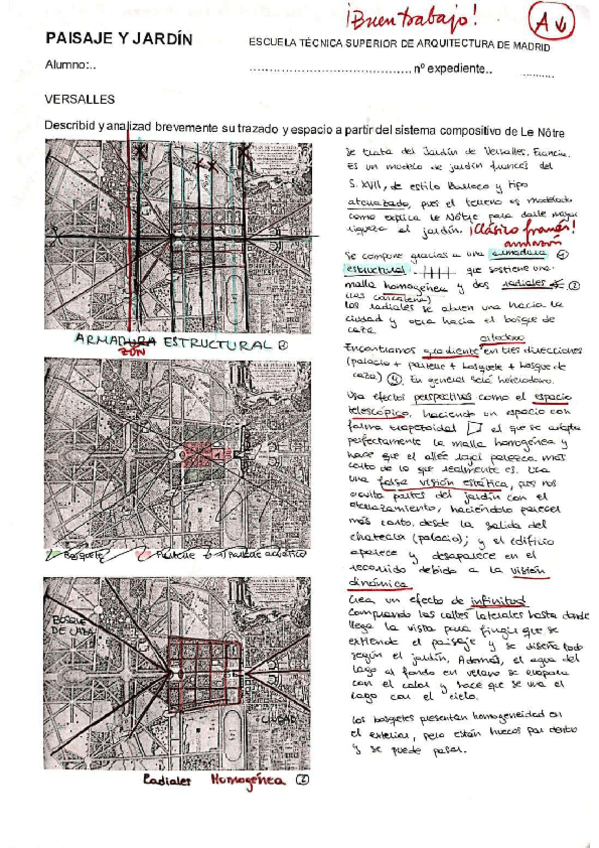 ¡Buen trabajo!
A↓
PAISAJE Y JARDÍN
ESCUELA TÉCNICA SUPERIOR DE ARQUITECTURA DE MADRID
Alumno:..
nº expediente..
VERSALLES
Describid y analizad brevemente su trazado y espacio a partir del sistema compositivo de Le Nôtre
Se trata del Jardín de Versalles, Francia.
Es un modelo de jardín francés del
S. XVII, de estilo Barroco y tipo
aterrazado, pues el terreno es modelado
como explica Le Nôtre para darle mayor
riqueza al jardín. ¡Clásico francés!
armazón
Se compone gracias a una armadura ①
estructural que sostiene una
malla homogénea y dos radiales ②
Los radiales se abren una hacia la
ciudad y otra hacia el bosque de
caza.
Encontramos gradiente en tres direcciones
(palacio + parterre + bosquete + bosque de
caza) En general será heterodoxo.
Usa efectos perspectivos como el espacio
telescópico, haciendo un espacio con
forma trapezoidal el que se adapta
perfectamente la malla homogénea y
hace que el allée parezca más
corto de lo que realmente es. Usa
una falsa visión estática, pues nos
oculta partes del jardín con el
aterrazamiento, haciéndolo parecer
más corto, desde la salida del
chateau (palacio); y el edificio
aparece y desaparece en el
recorrido debido a la visión
dinámica
Crea un efecto de infinitud
comprando las calles laterales hasta donde
llega la vista para fingir que se
extiende el paisaje y se diseña todo
según el jardín. Además, el agua del
lago al fondo en verano se evapora
con el calor y hace que se una el
lago con el cielo.
Los bosquetes presentan homogeneidad en
el exterior, pero están huecos por dentro
y se puede pasar.
ARMADURA ESTRUCTURAL ①
ZÓN
Bosquete Parterre Parterre acuático
BOSQUE
DE CAZA
CIUDAD
Radiales Homogénea ②